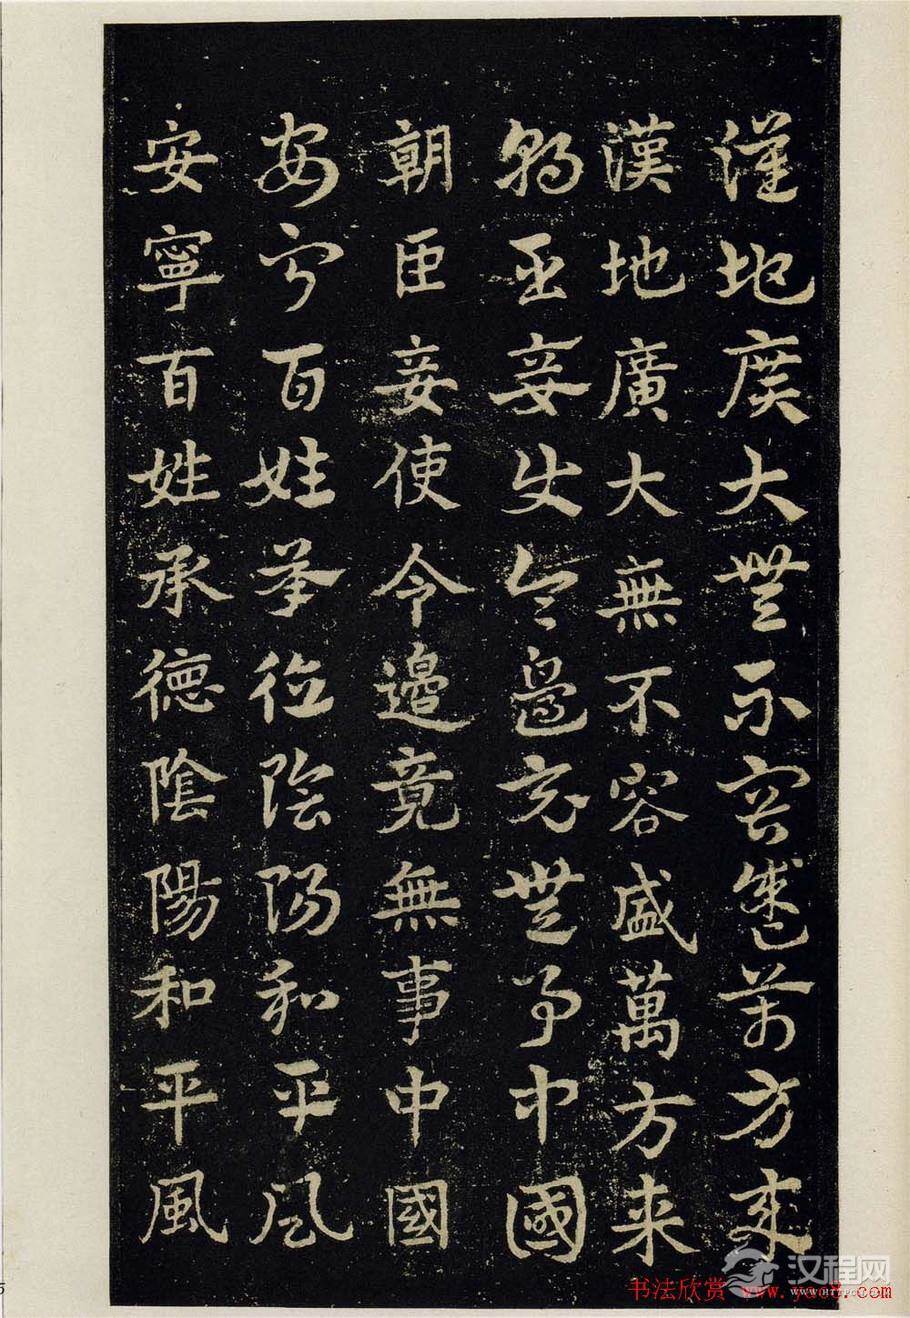 漢地廣大無不容盛萬方来
漢地廣大無不容盛萬方来
朝臣妾使令邊竟無事中國
朝臣妾使令邊竟無事中國
安寧百姓承德陰陽和平風
安寧百姓承德陰陽和平風
汉程网
WWW.HTTPCN.COM
书法欣赏 www.yac8.com
5